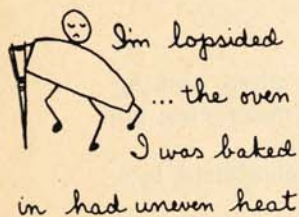 I'm lopsided
... the oven
I was baked
in had uneven heat